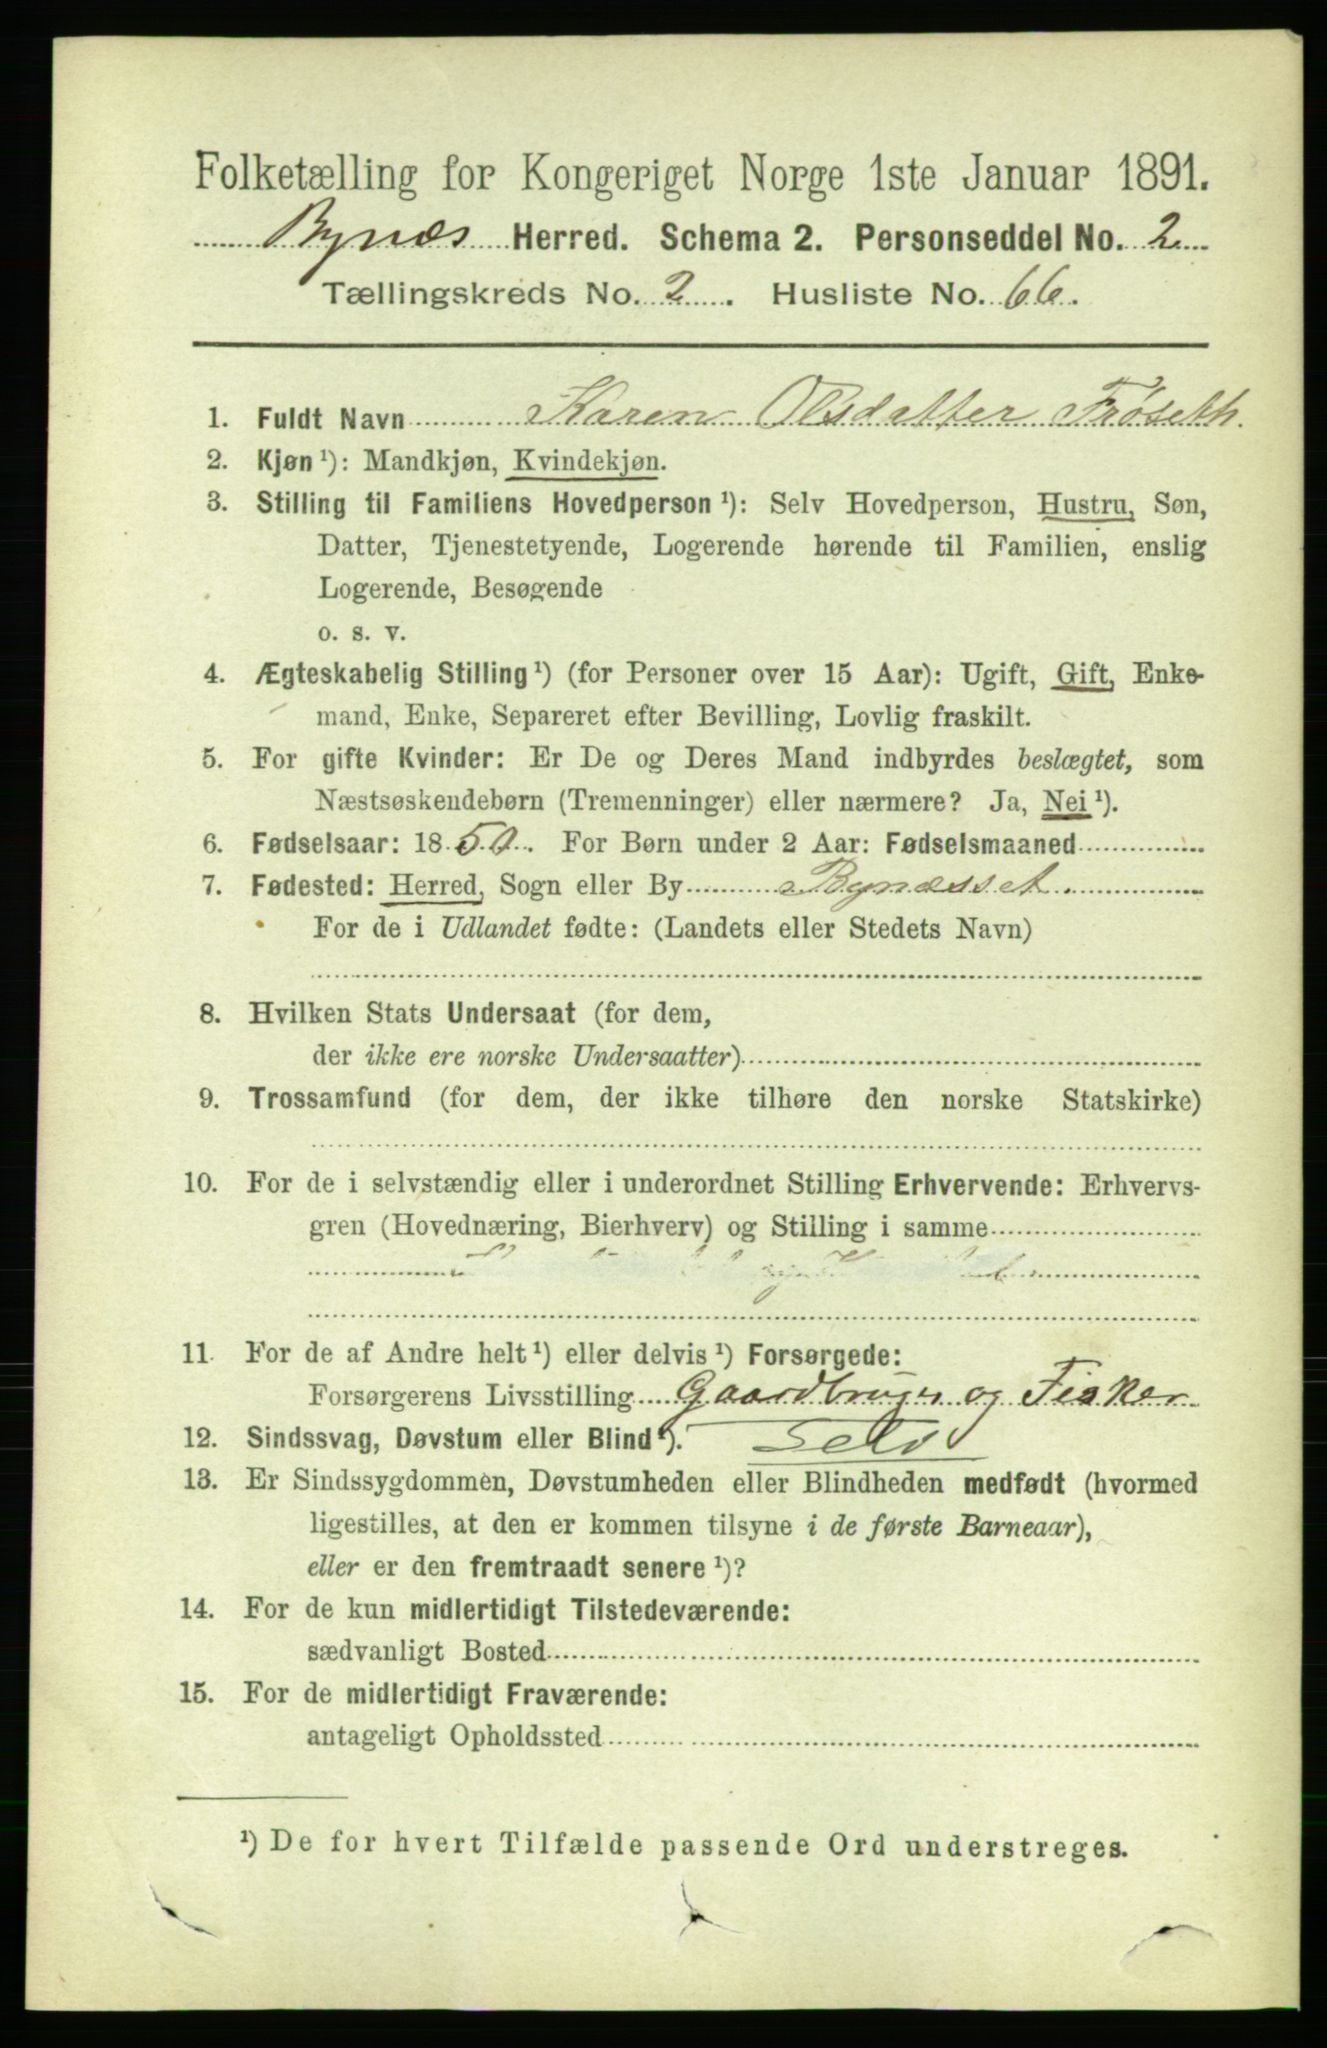 Folketælling for Kongeriget Norge 1ste Januar 1891.
Bynæs Herred. Schema 2. Personseddel No. 2
Tællingskreds No. 2. Husliste No. 66.
1. Fuldt Navn Karen Olsdatter Frøseth.
2. Kjøn ¹): Mandkjøn, Kvindekjøn.
3. Stilling til Familiens Hovedperson ¹): Selv Hovedperson, Hustru, Søn,
Datter, Tjenestetyende, Logerende hørende til Familien, enslig
Logerende, Besøgende
o. s. v.
4. Ægteskabelig Stilling ¹) (for Personer over 15 Aar): Ugift, Gift, Enke-
mand, Enke, Separeret efter Bevilling, Lovlig fraskilt.
5. For gifte Kvinder: Er De og Deres Mand indbyrdes beslægtet, som
Næstsøskendebørn (Tremenninger) eller nærmere? Ja, Nei ¹).
6. Fødselsaar: 1850. For Børn under 2 Aar: Fødselsmaaned
7. Fødested: Herred, Sogn eller By Bynæsset.
For de i Udlandet fødte: (Landets eller Stedets Navn)
8. Hvilken Stats Undersaat (for dem,
der ikke ere norske Undersaatter)
9. Trossamfund (for dem, der ikke tilhøre den norske Statskirke)
10. For de i selvstændig eller i underordnet Stilling Erhvervende: Erhvervs-
gren (Hovednæring, Bierhverv) og Stilling i samme
11. For de af Andre helt ¹) eller delvis ¹) Forsørgede:
Forsørgerens Livsstilling Gaardbruger og Fisker
12. Sindssvag, Døvstum eller Blind ¹). Selv
13. Er Sindssygdommen, Døvstumheden eller Blindheden medfødt (hvormed
ligestilles, at den er kommen tilsyne i de første Barneaar),
eller er den fremtraadt senere ¹)?
14. For de kun midlertidigt Tilstedeværende:
sædvanligt Bosted
15. For de midlertidigt Fraværende:
antageligt Opholdssted
¹) De for hvert Tilfælde passende Ord understreges.